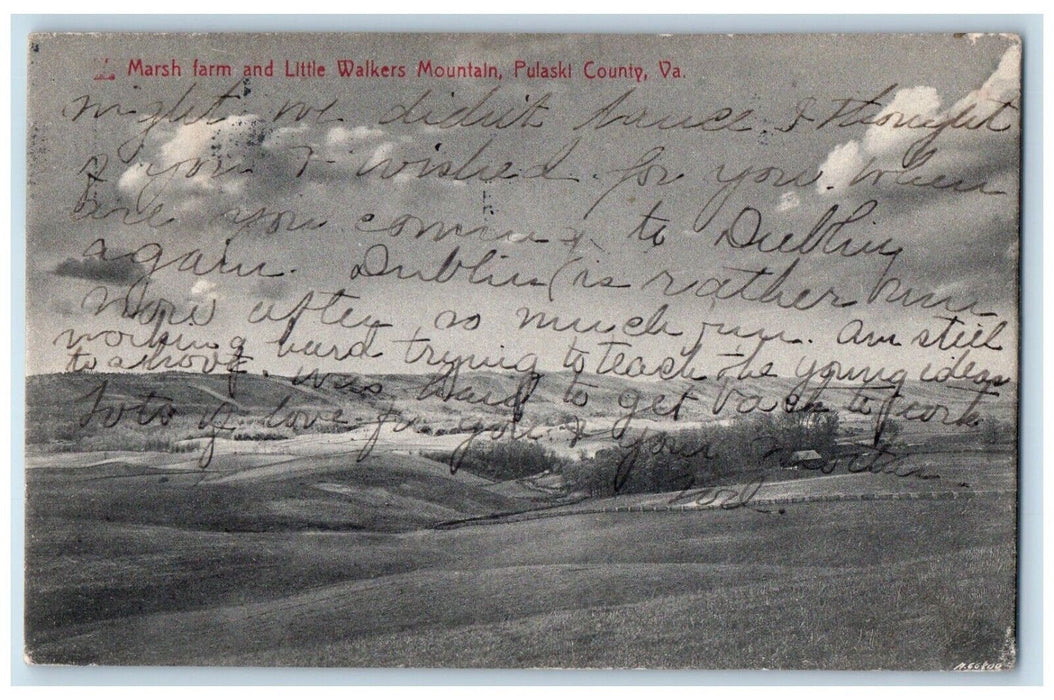 Marsh farm and Little Walkers Mountain, Pulaski County, Va.
might we didn't dance. I thought
of you & wished for you. when
are you coming to Dublin
again. Dublin is rather run
down after so much fun. Am still
working hard trying to teach the young ideas
to shoot. was hard to get back to work
Lots of love for you & your
A.66800